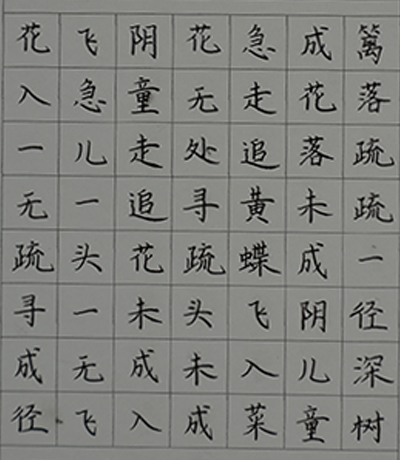 花飞阴花急成篱
入急童无走花落
一儿走处追落疏
无一追寻黄未疏
疏头花疏蝶成一
寻一未头飞阴径
成无成未入儿深
径飞入成菜童树